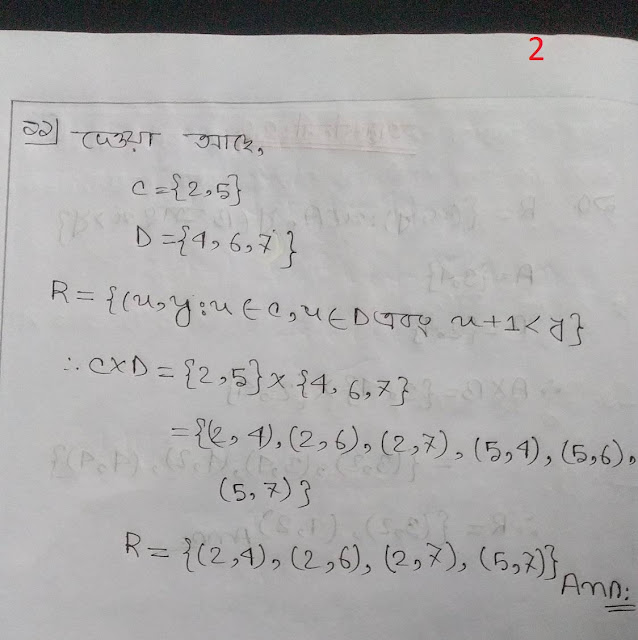 2
২২| দেওয়া আছে,
C={2,5}
D={4,6,7}
R={(x,y:x∈C,x∈D এবং x+1<y}
∴ C×D={2,5}×{4,6,7}
={(2,4),(2,6),(2,7),(5,4),(5,6),
(5,7)}
R={(2,4),(2,6),(2,7),(5,7)}
Ans: